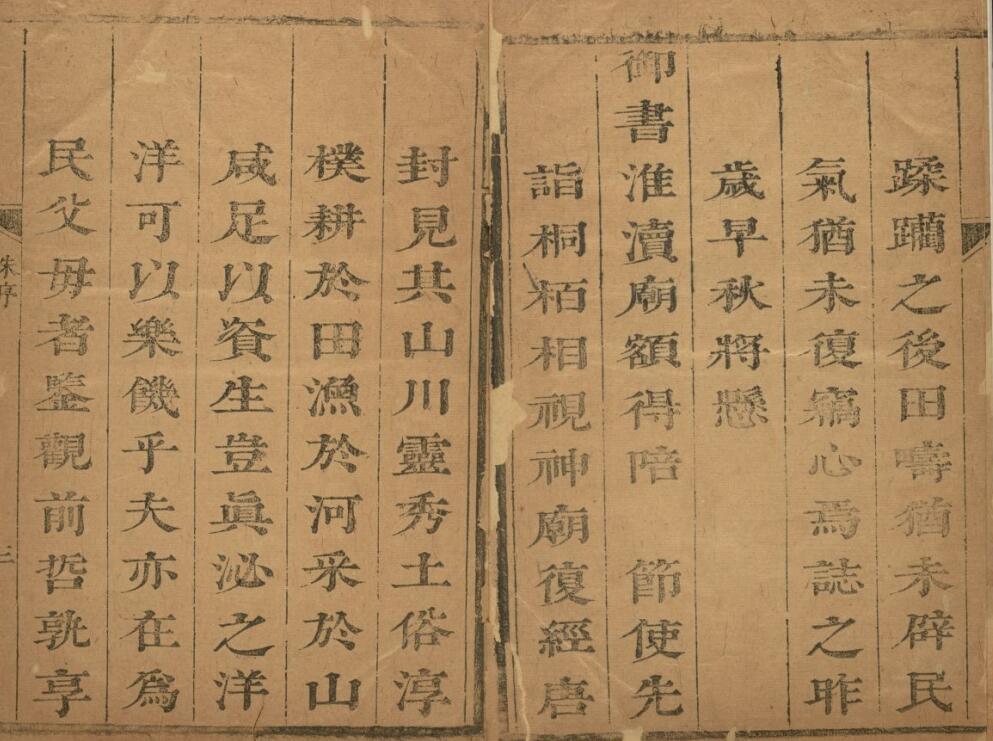 蹂躪之後田疇猶未辟民
氣猶未復竊心焉誌之昨
歲早秋將懸
御書淮瀆廟額得陪 節使先
詣桐栢相視神廟復經唐
封見其山川靈秀土俗淳
樸耕於田漁於河采於山
咸足以資生豈眞泌之洋
洋可以樂饑乎夫亦在爲
民父毋者鑒觀前哲孰享
朱序
三